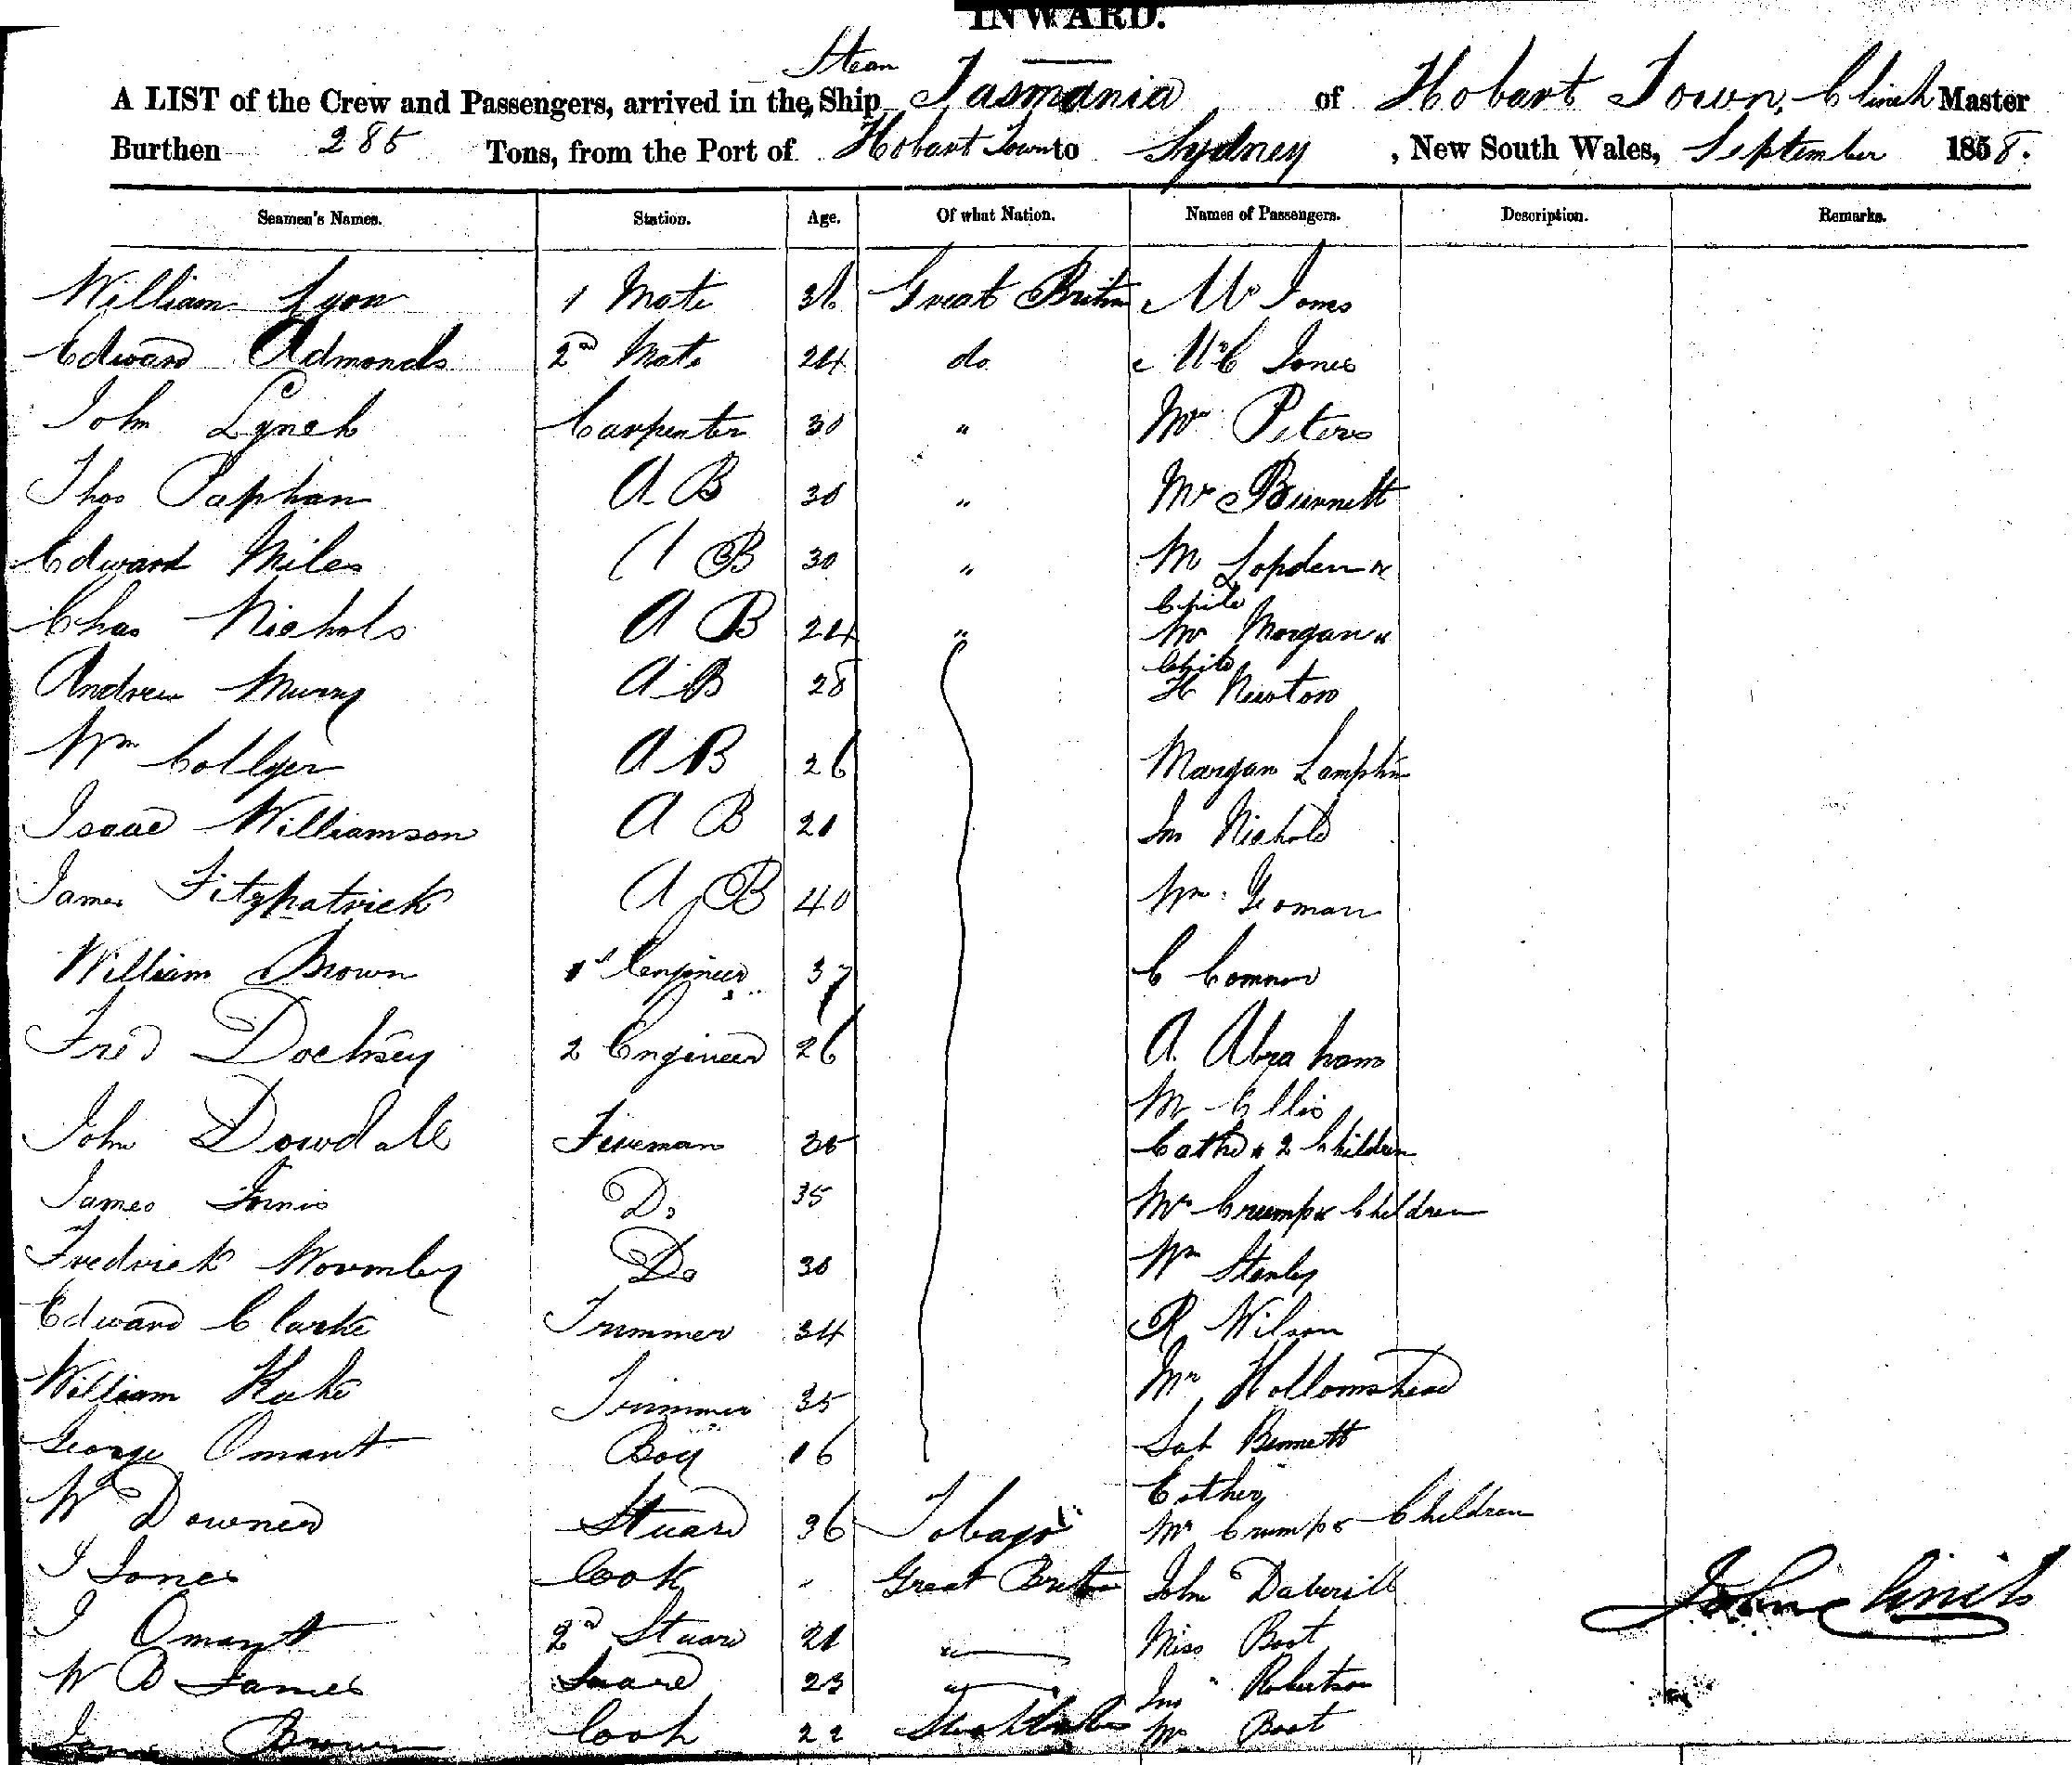 INWARD.
Steam
A LIST of the Crew and Passengers, arrived in the Ship Tasmania of Hobart Town, Clinch Master
Burthen 285 Tons, from the Port of Hobart Town to Sydney, New South Wales, September 1858.
Seamen's Names. Station. Age. Of what Nation. Names of Passengers. Description. Remarks.
William Lyon 1 Mate 36 Great Britain Mr Jones
Edward Admonds 2nd Mate 24 do Jones
John Lynch Carpenter 30 " Mr Peters
Thos Paphan A B 30 " Mr Burnett
Edward Miles A B 30 " M Lopden &
Child
Chas Nichols A B 24 " Mr Morgan &
Child
Andrew Murry A B 28 H Newton
Wm Collyer A B 26 Morgan
Isaac Williamson A B 21 Nichols
James Fitzpatrick A B 40 Wm Yoman
William Brown 1st Engineer 37 C Connor
Fred 2 Engineer 26 A. Abraham
M Ellis
John Dowdall Fireman Cath & 2 Children
James Do 35 Mrs Crump & Children
Fredrick Wormley Do 30 Wm Stanley
Edward Clarke Trimmer 34 R Wilson
William Trimmer 35 Mr
George Omant Boy 16 Bennett
Esther
W Downes Stuard 36 Tobago Mr Crump & Children
J Jones Cook Great Britain John
J Omant 2nd Stuard 21 " Miss Boot
W B James 23 " Robertson
Brown Cook 22 Mr Boot
John Clinch